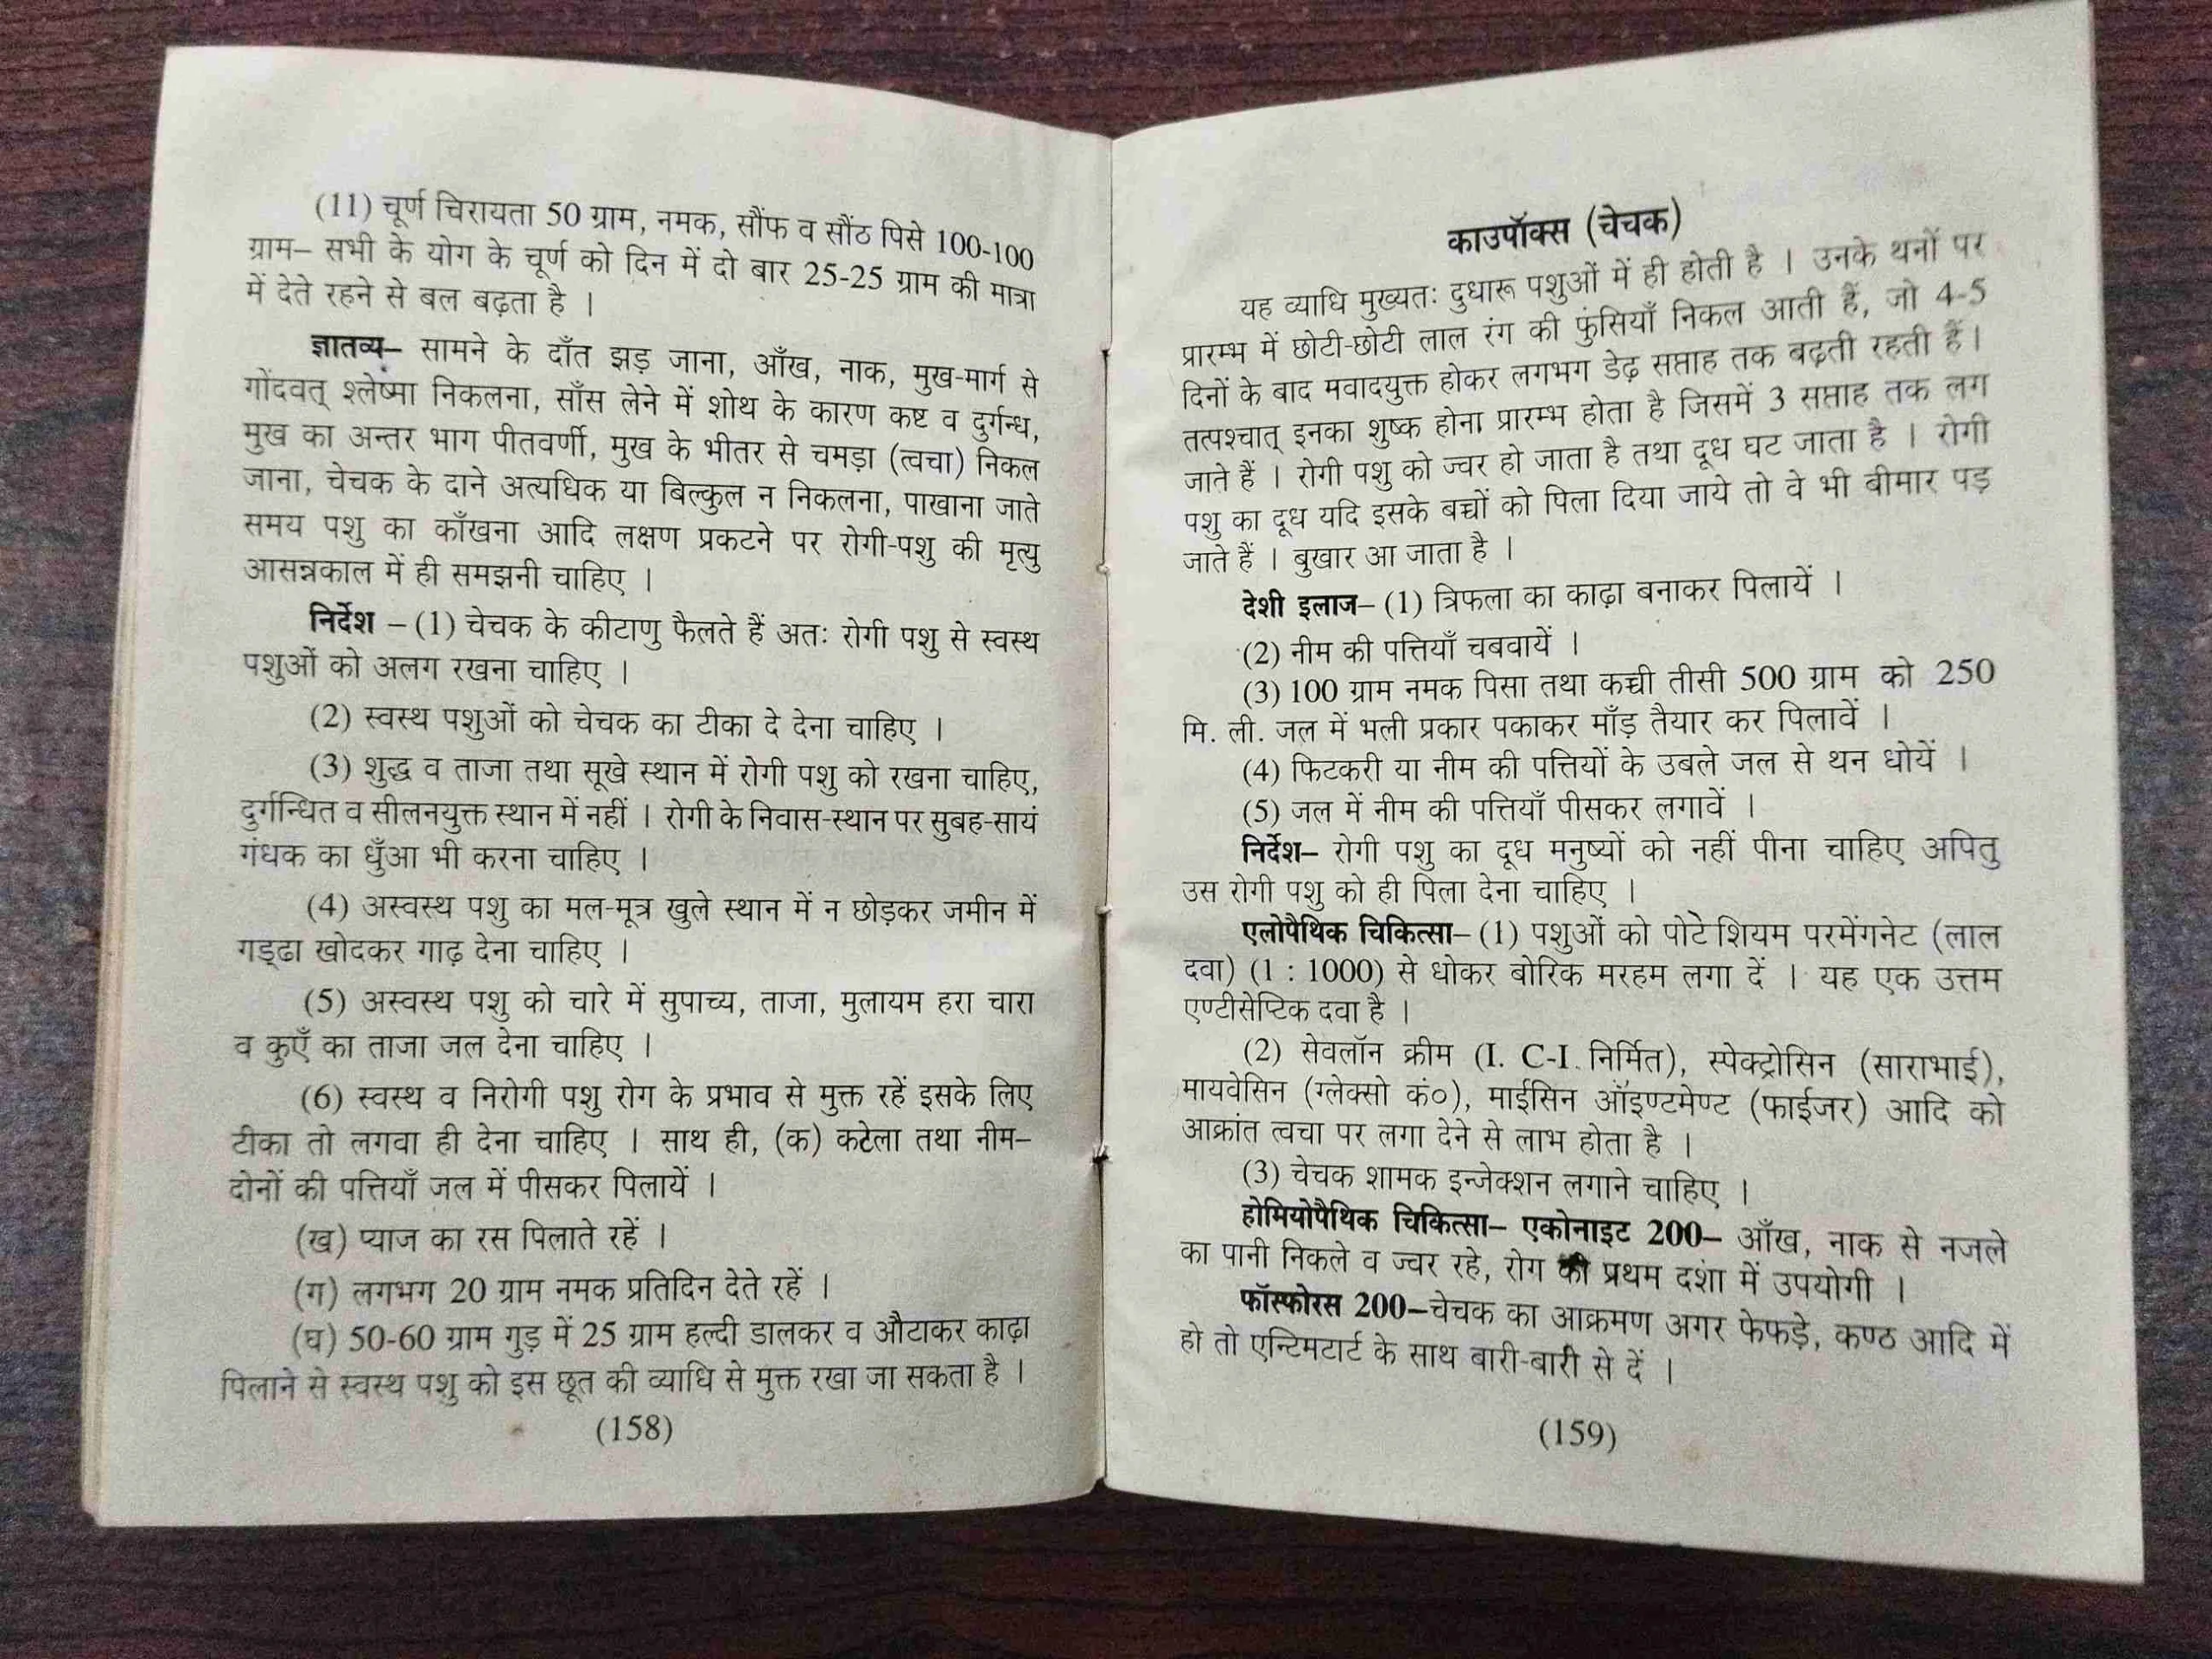 (11) चूर्ण चिरायता 50 ग्राम, नमक, सौंफ व सौंठ पिसे 100-100
ग्राम– सभी के योग के चूर्ण को दिन में दो बार 25-25 ग्राम की मात्रा
में देते रहने से बल बढ़ता है ।
ज्ञातव्य– सामने के दाँत झड़ जाना, आँख, नाक, मुख-मार्ग से
गोंदवत् श्लेष्मा निकलना, साँस लेने में शोथ के कारण कष्ट व दुर्गन्ध,
मुख का अन्तर भाग पीतवर्णी, मुख के भीतर से चमड़ा (त्वचा) निकल
जाना, चेचक के दाने अत्यधिक या बिल्कुल न निकलना, पाखाना जाते
समय पशु का काँखना आदि लक्षण प्रकटने पर रोगी-पशु की मृत्यु
आसन्नकाल में ही समझनी चाहिए ।
निर्देश –(1) चेचक के कीटाणु फैलते हैं अतः रोगी पशु से स्वस्थ
पशुओं को अलग रखना चाहिए ।
(2) स्वस्थ पशुओं को चेचक का टीका दे देना चाहिए ।
(3) शुद्ध व ताजा तथा सूखे स्थान में रोगी पशु को रखना चाहिए,
दुर्गन्धित व सीलनयुक्त स्थान में नहीं । रोगी के निवास-स्थान पर सुबह-सायं
गंधक का धुँआ भी करना चाहिए ।
(4) अस्वस्थ पशु का मल-मूत्र खुले स्थान में न छोड़कर जमीन में
गड्ढा खोदकर गाढ़ देना चाहिए ।
(5) अस्वस्थ पशु को चारे में सुपाच्य, ताजा, मुलायम हरा चारा
व कुएँ का ताजा जल देना चाहिए ।
(6) स्वस्थ व निरोगी पशु रोग के प्रभाव से मुक्त रहें इसके लिए
टीका तो लगवा ही देना चाहिए । साथ ही, (क) कटेला तथा नीम–
दोनों की पत्तियाँ जल में पीसकर पिलायें ।
(ख) प्याज का रस पिलाते रहें ।
(ग) लगभग 20 ग्राम नमक प्रतिदिन देते रहें ।
(घ) 50-60 ग्राम गुड़ में 25 ग्राम हल्दी डालकर व औटाकर काढ़ा
पिलाने से स्वस्थ पशु को इस छूत की व्याधि से मुक्त रखा जा सकता है ।
(158)
काउपॉक्स (चेचक)
यह व्याधि मुख्यतः दुधारू पशुओं में ही होती है । उनके थनों पर
प्रारम्भ में छोटी-छोटी लाल रंग की फुंसियाँ निकल आती हैं, जो 4-5
दिनों के बाद मवादयुक्त होकर लगभग डेढ़ सप्ताह तक बढ़ती रहती हैं।
तत्पश्चात् इनका शुष्क होना प्रारम्भ होता है जिसमें 3 सप्ताह तक लग
जाते हैं । रोगी पशु को ज्वर हो जाता है तथा दूध घट जाता है । रोगी
पशु का दूध यदि इसके बच्चों को पिला दिया जाये तो वे भी बीमार पड़
जाते हैं । बुखार आ जाता है ।
देशी इलाज– (1) त्रिफला का काढ़ा बनाकर पिलायें ।
(2) नीम की पत्तियाँ चबवायें ।
(3) 100 ग्राम नमक पिसा तथा कच्ची तीसी 500 ग्राम को 250
मि. ली. जल में भली प्रकार पकाकर माँड़ तैयार कर पिलावें ।
(4) फिटकरी या नीम की पत्तियों के उबले जल से थन धोयें ।
(5) जल में नीम की पत्तियाँ पीसकर लगावें ।
निर्देश– रोगी पशु का दूध मनुष्यों को नहीं पीना चाहिए अपितु
उस रोगी पशु को ही पिला देना चाहिए ।
एलोपैथिक चिकित्सा– (1) पशुओं को पोटेशियम परमेंगनेट (लाल
दवा) (1 : 1000) से धोकर बोरिक मरहम लगा दें । यह एक उत्तम
एण्टीसेप्टिक दवा है ।
(2) सेवलॉन क्रीम (I. C-I. निर्मित), स्पेक्ट्रोसिन (साराभाई),
मायवेसिन (ग्लेक्सो कं०), माईसिन ऑइण्टमेण्ट (फाईजर) आदि को
आक्रांत त्वचा पर लगा देने से लाभ होता है ।
(3) चेचक शामक इन्जेक्शन लगाने चाहिए ।
होमियोपैथिक चिकित्सा– एकोनाइट 200– आँख, नाक से नजले
का पानी निकले व ज्वर रहे, रोग की प्रथम दशा में उपयोगी ।
फॉस्फोरस 200–चेचक का आक्रमण अगर फेफड़े, कण्ठ आदि में
हो तो एन्टिमटार्ट के साथ बारी-बारी से दें ।
(159)